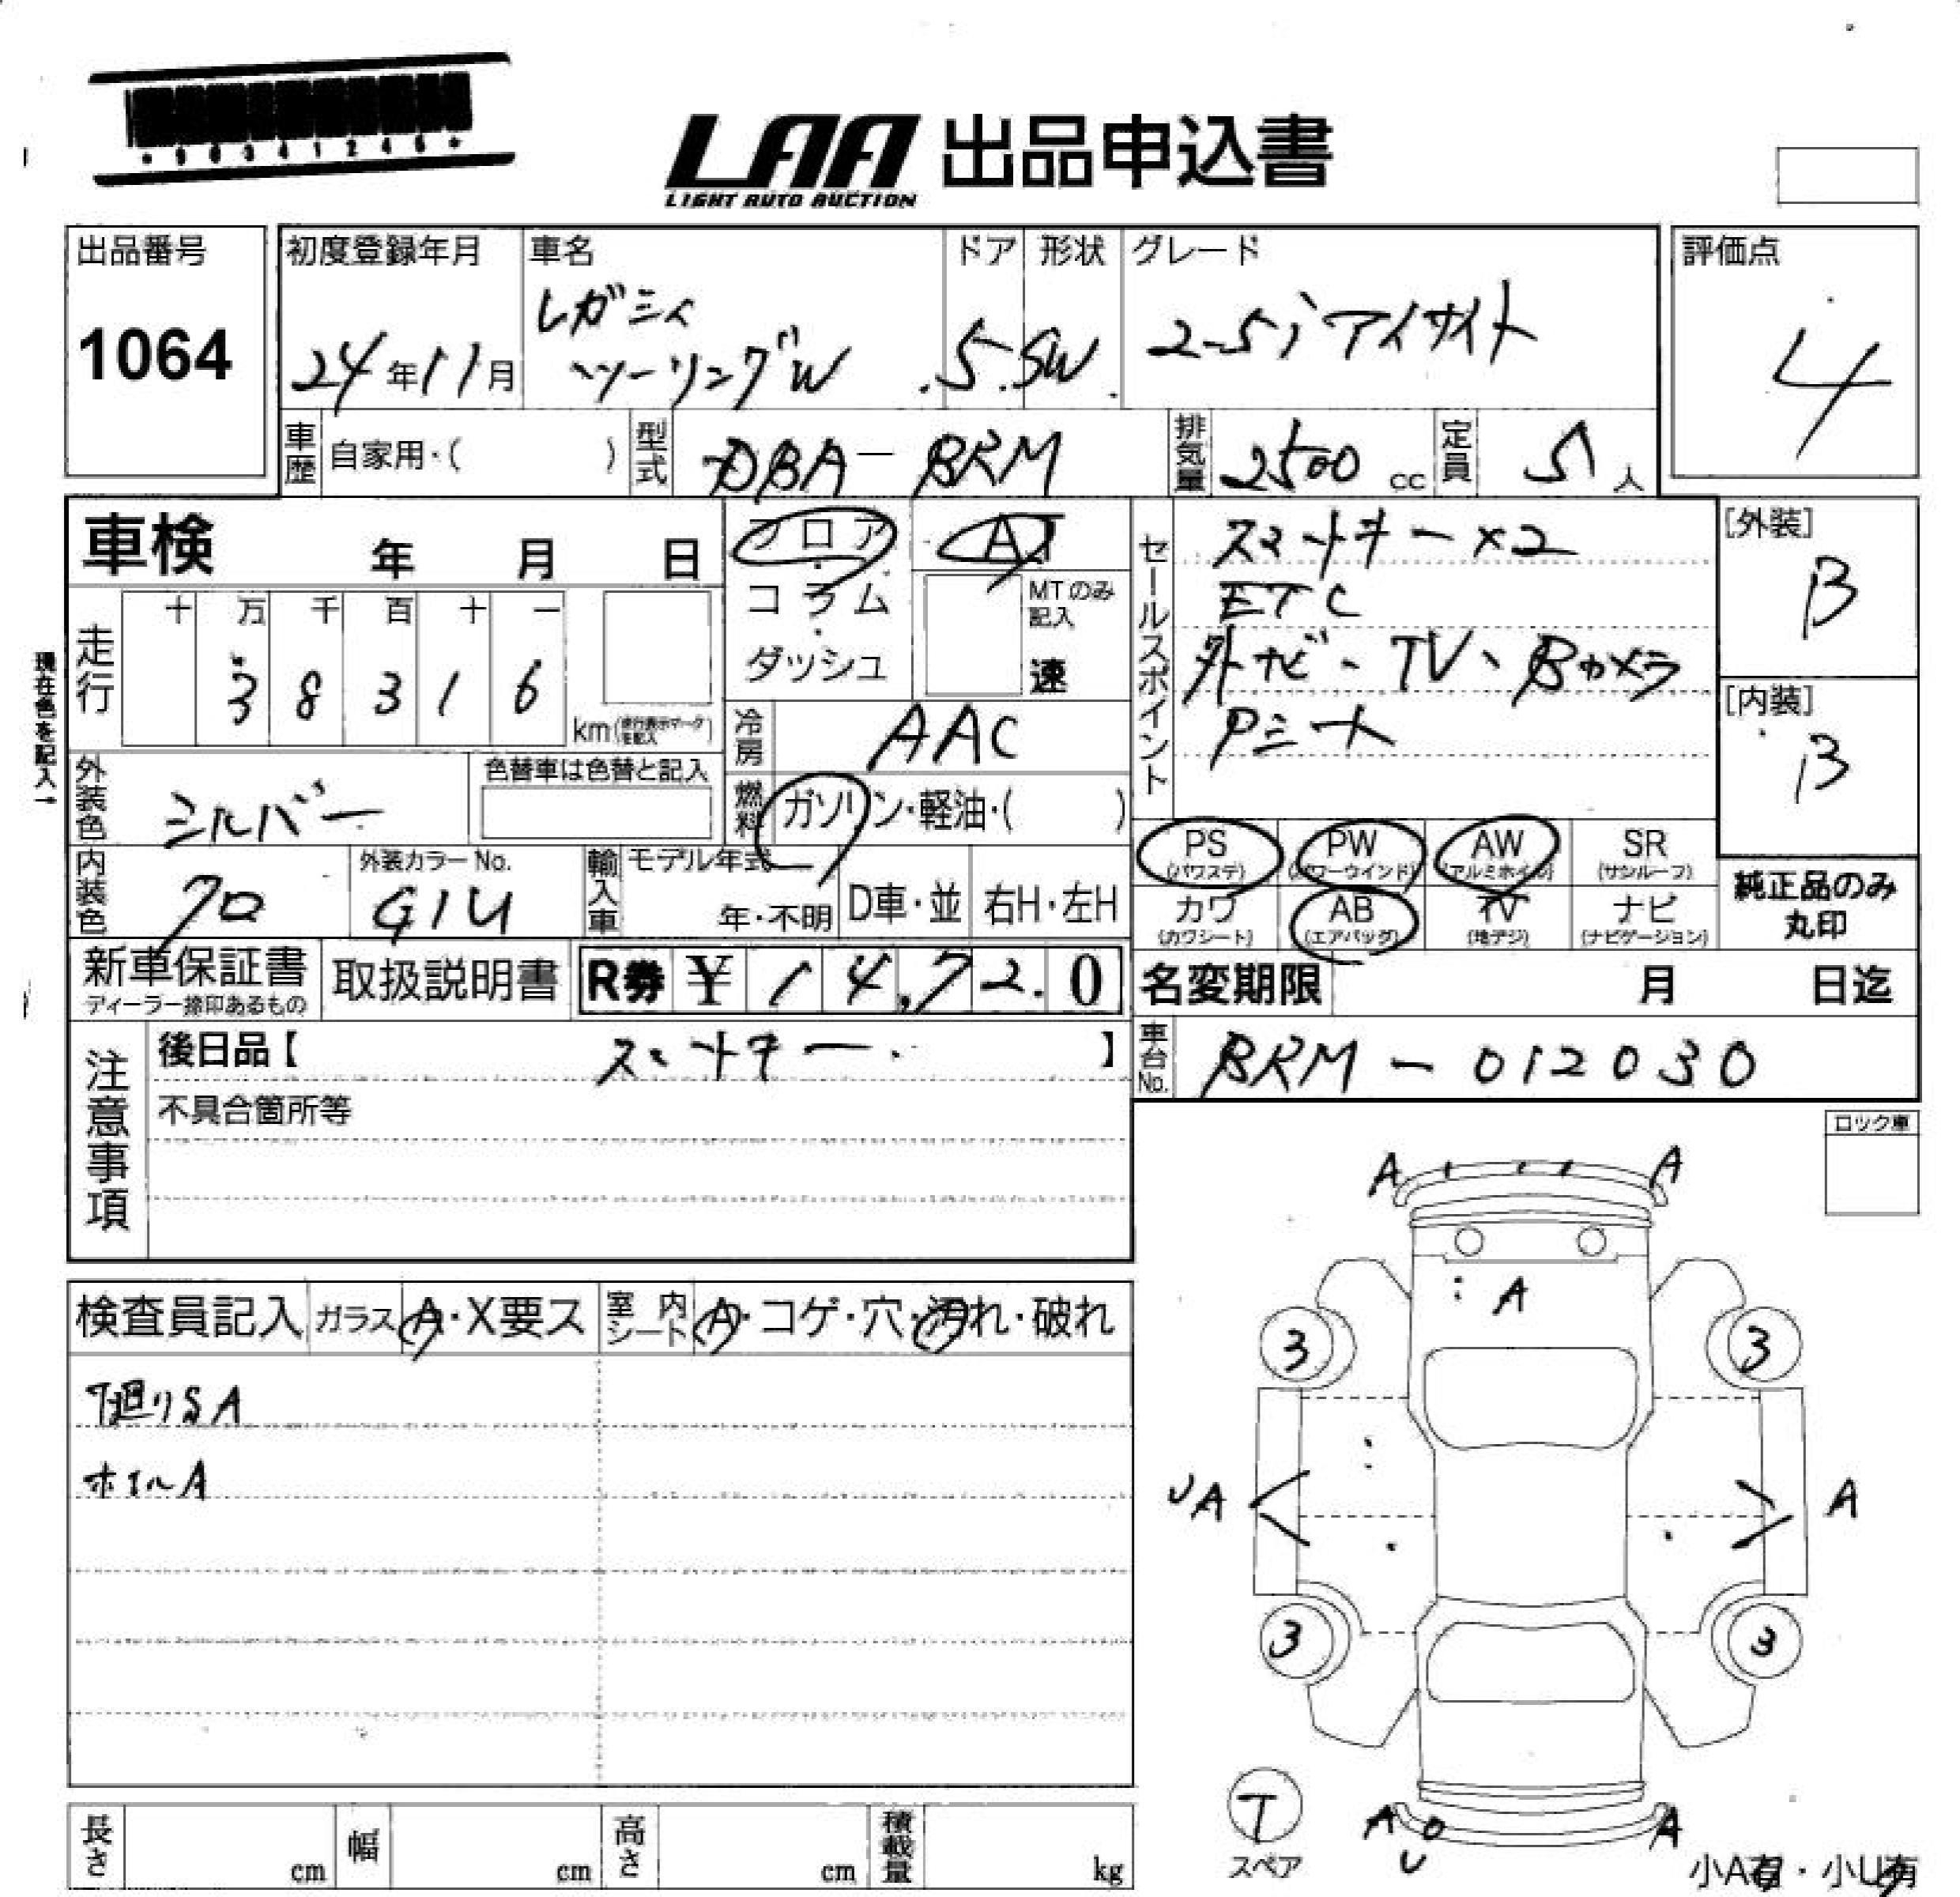 *90341246*
LAA 出品申込書
LIGHT AUTO AUCTION
出品番号
1064
初度登録年月
24年11月
車名
レガシィ
ツーリングW
ドア
5
形状
SW
グレード
2-5i アイサイト
評価点
4
車歴 自家用・( )
型式 DBA-BRM
排気量 2500 cc
定員 5 人
車検 年 月 日
フロア
コラム
ダッシュ
AT
MTのみ記入
速
セールスポイント
スマートキー ×2
ETC
外ナビ、TV、Bカメラ
Pシート
[外装]
B
[内装]
B
現在色を記入→
走行
十 万 千 百 十 一
3 8 3 1 6
km(走行表示マークを記入)
冷房 AAC
燃料 ガソリン・軽油・( )
外装色 シルバー
色替車は色替と記入
内装色 クロ
外装カラーNo.
G1U
輸入車
モデル年式
年・不明
D車・並
右H・左H
PS
(パワステ)
PW
(パワーウインド)
AW
(アルミホイル)
SR
(サンルーフ)
カワ
(カワシート)
AB
(エアバッグ)
TV
(地デジ)
ナビ
(ナビゲーション)
純正品のみ
丸印
新車保証書
ディーラー捺印あるもの
取扱説明書
R券 ¥ 14,720
名変期限 月 日迄
注意事項
後日品【 スマートキー 】
不具合箇所等
車台No. BRM-012030
ロック車
検査員記入
ガラス A・X要ス
室内シート A・コゲ・穴・汚れ・破れ
下廻りSA
ホイルA
A A
A
3 3
UA A
3 3
T
スペア
A U A
小A有・小U有
長さ cm
幅 cm
高さ cm
積載量 kg